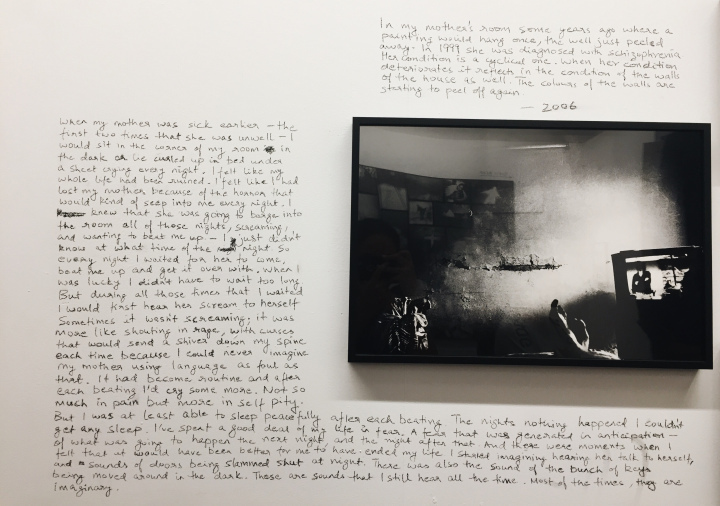 In my mother's room some years ago where a
painting would hang once, the wall just peeled
away. In 1999 she was diagnosed with schizophrenia
Her condition is a cyclical one. When her condition
deteriorates it reflects in the condition of the walls
of the house as well. The colours of the walls are
starting to peel off again
— 2006
When my mother was sick earlier – the
first two times that she was unwell – I
would sit in the corner of my room in
the dark or lie curled up in bed under
a sheet crying every night. I felt like my
whole life had been ruined. I felt like I had
lost my mother because of the horror that
would kind of seep into me every night. I
knew that she was going to barge into
the room all of those nights, screaming,
and wanting to beat me up. – I just didn't
know at what time of the night. So
every night I waited for her to come,
beat me up and get it over with. When I
was lucky I didn't have to wait too long
But during all those times that I waited
I would first hear her scream to herself
Sometimes it wasn't screaming. it was
more like shouting in rage, with curses
that would send a shiver down my spine
each time because I could never imagine
my mother using language as foul as
that. It had become routine and after
each beating I'd cry some more. Not so
much in pain but more in self pity.
But I was at least able to sleep peacefully after each beating The nights nothing happened I couldn't
get any sleep. I've spent a good deal of my life in fear. A fear that was generated in anticipation –
of what was going to happen the next night, and the night after that. And there were moments when I
felt that it would have been better for me to have ended my life I started imagining hearing her talk to herself,
and sounds of doors being slammed shut at night. There was also the sound of the bunch of keys
being moved around in the dark. These are sounds that I still hear all the time. Most of the times, they are
imaginary.